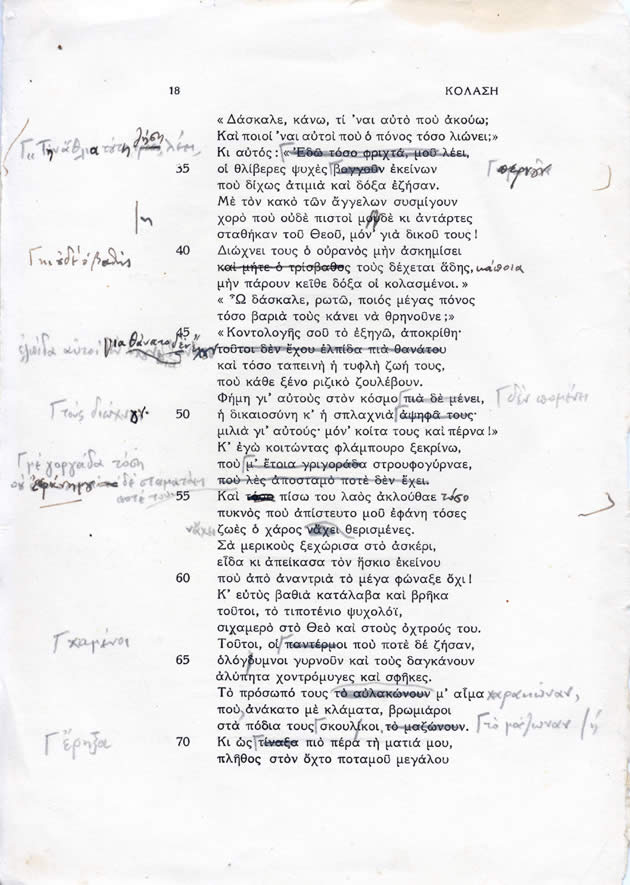 18 ΚΟΛΑΣΗ
« Δάσκαλε, κάνω, τί 'ναι αὐτὸ ποὺ ἀκούω;
Καὶ ποιοί 'ναι αὐτοὶ ποὺ ὁ πόνος τόσο λιώνει;»
Κι αὐτός: « Ἐδῶ τόσο φριχτά, μοῦ λέει,
35 οἱ θλίβερες ψυχὲς βογγοῦν ἐκείνων
ποὺ δίχως ἀτιμιὰ καὶ δόξα ἐζήσαν.
Μὲ τὸν κακὸ τῶν ἄγγελων συσμίγουν
χορὸ ποὺ οὐδὲ πιστοὶ μουδὲ κι ἀντάρτες
σταθήκαν τοῦ Θεοῦ, μόν' γιὰ δικοῦ τους!
Γκι οὐδ' ὁ βαθὺς
40 Διώχνει τους ὁ οὐρανὸς μὴν ἀσκημίσει
καὶ μήτε ὁ τρίσβαθος τοὺς δέχεται ἅδης, κάποια
μὴν πάρουν κεῖθε δόξα οἱ κολασμένοι. »
« Ὦ δάσκαλε, ρωτῶ, ποιός μέγας πόνος
τόσο βαριὰ τοὺς κάνει νὰ θρηνοῦνε;»
45 « Κοντολογῆς σοῦ τὸ ἐξηγῶ, ἀποκρίθη·
ἐλπίδα αὐτοὶ για θάνατο δὲν
τοῦτοι δὲν ἔχου ἐλπίδα πιὰ θανάτου
καὶ τόσο ταπεινὴ ἡ τυφλὴ ζωή τους,
ποὺ κάθε ξένο ριζικὸ ζουλέβουν.
Φήμη γι' αὐτοὺς στὸν κόσμο πιὰ δὲ μένει, Γδὲν ἀπομένει
Γτοὺς διώχν
50 ἡ δικαιοσύνη κ' ἡ σπλαχνιὰ ἀψηφᾶ τους·
μιλιὰ γι' αὐτούς· μόν' κοίτα τους καὶ πέρνα!»
Κ' ἐγὼ κοιτώντας φλάμπουρο ξεκρίνω,
Γμὲ γοργάδα τόση
ποὺ μ' ἔτοια γρηγοράδα στρουφογύρναε,
δὲ σταματάει
ποὺ λὲς ἀποσταμὸ ποτὲ δὲν ἔχει.
55 Καὶ τόσο πίσω του λαὸς ἀκλούθαε τόσο
πυκνὸς ποὺ ἀπίστευτο μοῦ ἐφάνη τόσες
νἄχει
ζωὲς ὁ χάρος νἄχει θερισμένες.
Σὰ μερικοὺς ξεχώρισα στὸ ἀσκέρι,
εἶδα κι ἀπείκασα τὸν ἥσκιο ἐκείνου
60 ποὺ ἀπὸ ἀναντριὰ τὸ μέγα φώναξε ὄχι!
Κ' εὐτὺς βαθιὰ κατάλαβα καὶ βρῆκα
τοῦτοι, τὸ τιποτένιο ψυχολόϊ,
σιχαμερὸ στὸ Θεὸ καὶ στοὺς ὀχτρούς του.
Γχαμένοι
Τοῦτοι, οἱ παντέρμοι ποὺ ποτὲ δὲ ζῆσαν,
65 ὁλόγδυμνοι γυρνοῦν καὶ τοὺς δαγκάνουν
ἀλύπητα χοντρόμυγες καὶ σφῆκες.
Τὸ πρόσωπό τους τὸ αὐλακώνουν μ' αἷμα χαρακώναν,
ποὺ ἀνάκατο μὲ κλάματα, βρωμιάροι
στὰ πόδια τους σκουλίκοι τὸ μαζώνουν. Γτὸ μάζωναν
Γἔρηξα
70 Κι ὡς τίναξα πιὸ πέρα τὴ ματιά μου,
πλῆθος στὸν ὄχτο ποταμοῦ μεγάλου